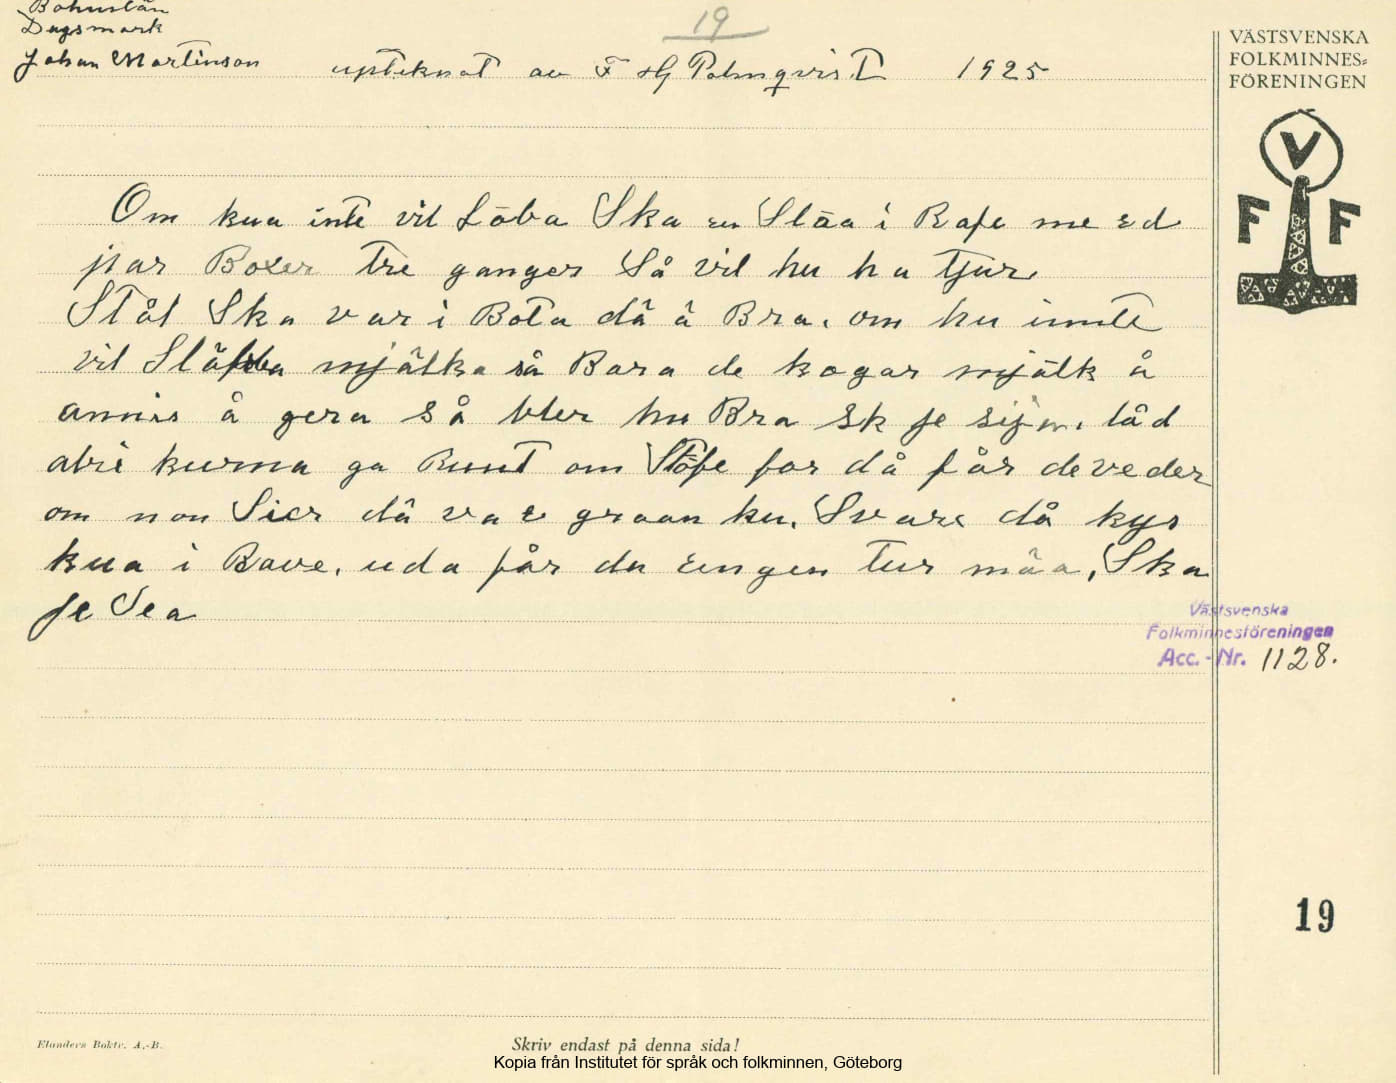 Bohuslän
Dagsmark
Johan Martinson upteknat av F H Palmqvist 1925
19
VÄSTSVENSKA
FOLKMINNES=
FÖRENINGEN
V
F F
Om kua inte vil Löba Ska en Slåa i Rafe me ed
par Boxer tre ganger Så vil hu ha tjur
Stål Ska var i Bota dä ä Bra. om hu innte
vil mjälka så Bara de kogar mjälk å
annis å gera så bler hu Bra sk je sijn. låd
abri kurna ga Runt om Stöfe for då får de veder
om non Sier dä va e graan ku. Svare då kys
kua i Rave. uda får du Eingen tur mäa, Ska
je Sea
Västsvenska
Folkminnesföreningen
Acc. - Nr. 1128.
19
Elanders Boktr. A.-B.
Skriv endast på denna sida!
Kopia från Institutet för språk och folkminnen, Göteborg